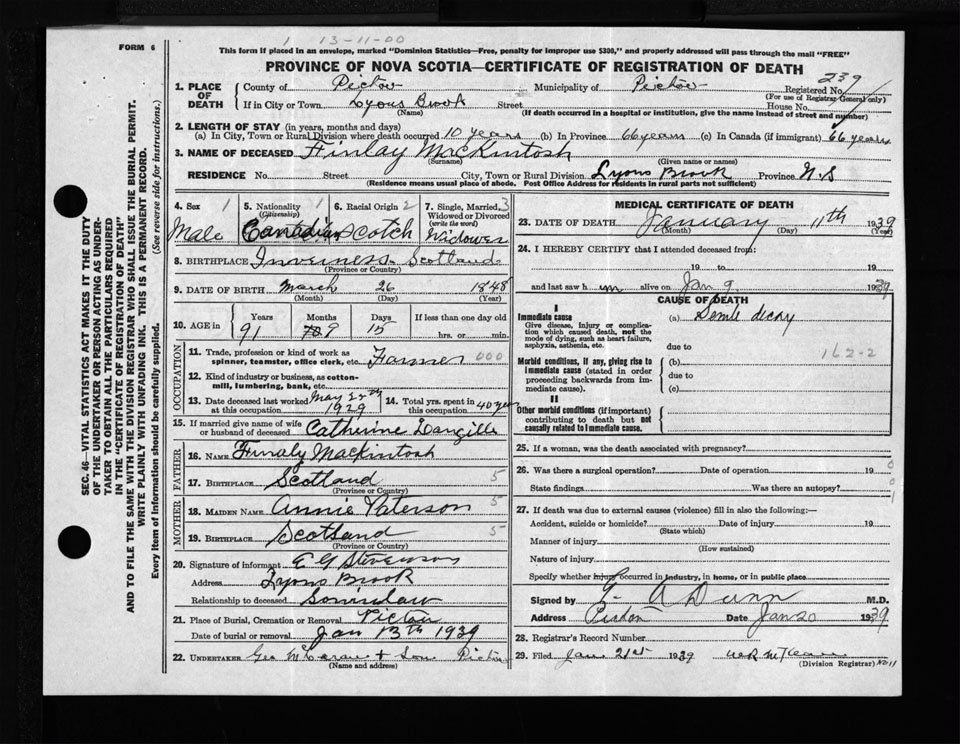 1 13-11-00
FORM 6
This form if placed in an envelope, marked "Dominion Statistics—Free, penalty for improper use $300," and properly addressed will pass through the mail "FREE"
PROVINCE OF NOVA SCOTIA—CERTIFICATE OF REGISTRATION OF DEATH
239
1. PLACE OF DEATH County of Pictou Municipality of Pictou Registered No.
(For use of Registrar General only)
If in City or Town Lyons Brook Street House No.
(Name) (If death occurred in a hospital or institution, give the name instead of street and number)
2. LENGTH OF STAY (in years, months and days)
(a) In City, Town or Rural Division where death occurred 10 years (b) In Province 66 years (c) In Canada (if immigrant) 66 years
3. NAME OF DECEASED Finlay MacKintosh
(Surname) (Given name or names)
RESIDENCE No. Street City, Town or Rural Division Lyons Brook Province N.S
(Residence means usual place of abode. Post Office Address for residents in rural parts not sufficient)
4. Sex 1 5. Nationality 1 (Citizenship) 6. Racial Origin 2 7. Single, Married, 3 Widowed or Divorced (write the word)
Male Canadian Scotch Widower
8. BIRTHPLACE Inverness Scotland
(Province or Country)
9. DATE OF BIRTH March 26 1848
(Month) (Day) (Year)
10. AGE in Years Months Days If less than one day old
91 9 15 hrs. or min.
OCCUPATION
11. Trade, profession or kind of work as spinner, teamster, office clerk, etc. Farmer 000
12. Kind of industry or business, as cotton-mill, lumbering, bank, etc.
13. Date deceased last worked at this occupation May 22nd 1929 14. Total yrs. spent in this occupation 40 years
15. If married give name of wife or husband of deceased Catherine Langille
FATHER
16. NAME Finaly MacKintosh
17. BIRTHPLACE Scotland 5
(Province or Country)
MOTHER
18. MAIDEN NAME Annie Paterson 5
19. BIRTHPLACE Scotland 5
(Province or Country)
20. Signature of informant E G Stevenson
Address Lyons Brook
Relationship to deceased Soninlaw
21. Place of Burial, Cremation or Removal Pictou
Date of burial or removal Jan 13th 1939
22. UNDERTAKER Geo + Son Pictou
(Name and address)
MEDICAL CERTIFICATE OF DEATH
23. DATE OF DEATH January 11th 1939
(Month) (Day) (Year)
24. I HEREBY CERTIFY that I attended deceased from:
19 to 19
and last saw h im alive on Jan 9 1939
CAUSE OF DEATH
I
Immediate cause (a) Senile decay
Give disease, injury or complication which caused death, not the mode of dying, such as heart failure, asphyxia, asthenia, etc.
due to
162-2
Morbid conditions, if any, giving rise to immediate cause (stated in order proceeding backwards from immediate cause).
(b)
due to
(c)
II
Other morbid conditions (if important) contributing to death but not causally related to immediate cause.
25. If a woman, was the death associated with pregnancy?
26. Was there a surgical operation? Date of operation 19 0
State findings Was there an autopsy? 0
1
27. If death was due to external causes (violence) fill in also the following:—
Accident, suicide or homicide? Date of injury 19
(State which)
Manner of injury
(How sustained)
Nature of injury
Specify whether injury occurred in industry, in home, or in public place
Signed by G. A Dunn M.D.
Address Pictou Date Jan 20 1939
28. Registrar's Record Number
29. Filed Jan 21st 1939
(Division Registrar) No 11
SEC. 46—VITAL STATISTICS ACT MAKES IT THE DUTY
OF THE UNDERTAKER OR PERSON ACTING AS UNDER-
TAKER TO OBTAIN ALL THE PARTICULARS REQUIRED
IN THE "CERTIFICATE OF REGISTRATION OF DEATH"
AND TO FILE THE SAME WITH THE DIVISION REGISTRAR WHO SHALL ISSUE THE BURIAL PERMIT.
WRITE PLAINLY WITH UNFADING INK. THIS IS A PERMANENT RECORD.
Every item of Information should be carefully supplied. (See reverse side for instructions.)